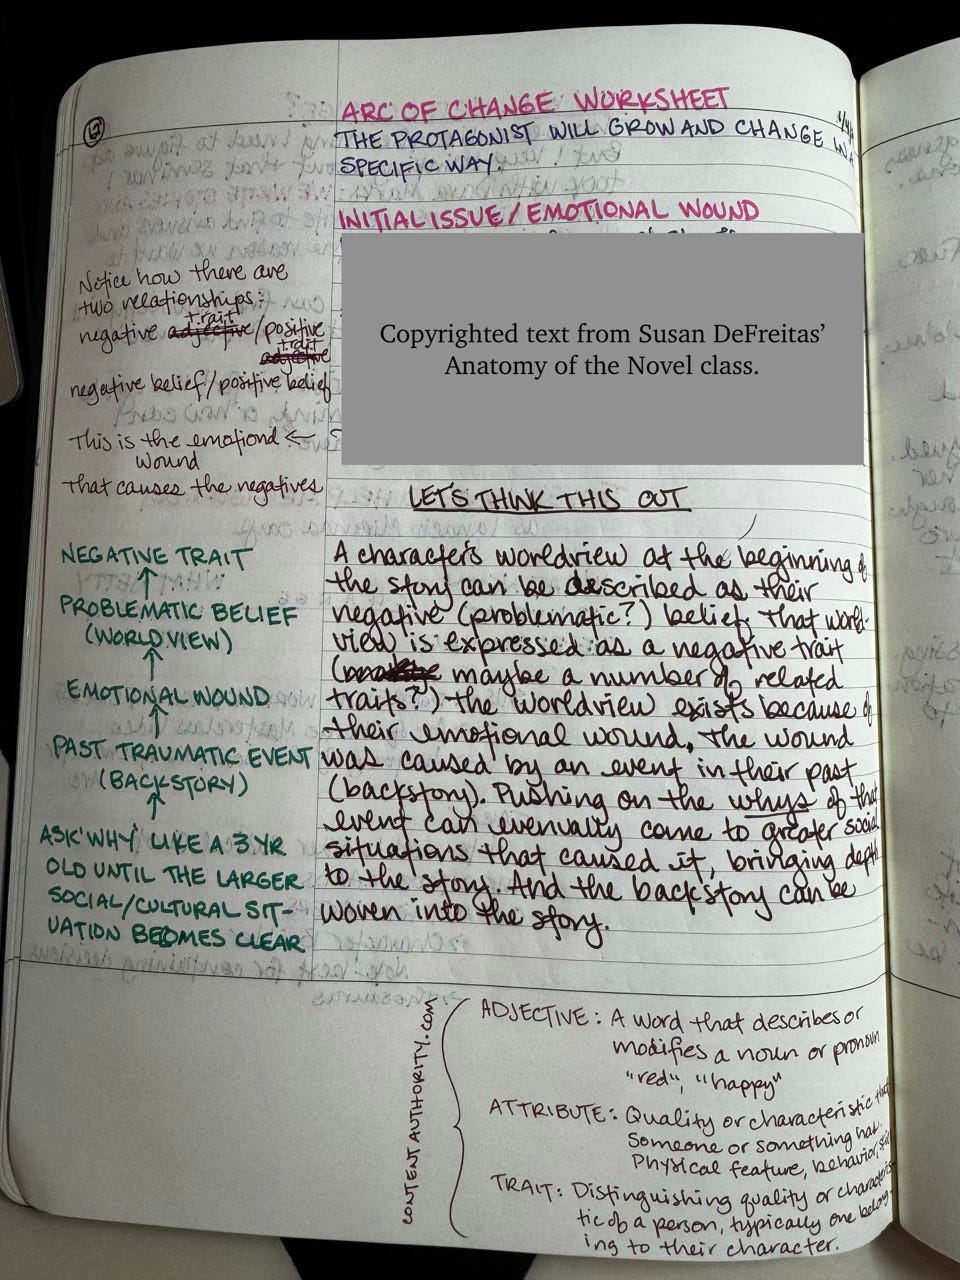 ARC OF CHANGE WORKSHEET
THE PROTAGONIST WILL GROW AND CHANGE IN A
SPECIFIC WAY.
INITIAL ISSUE/EMOTIONAL WOUND
Copyrighted text from Susan DeFreitas’
Anatomy of the Novel class.
Notice how there are
two relationships:
trait
negative adjective/positive
trait
adjective
negative belief/positive belief
This is the emotional ←
wound
that causes the negatives
LET'S THINK THIS OUT
NEGATIVE TRAIT
↑
PROBLEMATIC BELIEF
(WORLDVIEW)
↑
EMOTIONAL WOUND
↑
PAST TRAUMATIC EVENT
(BACKSTORY)
↑
ASK "WHY" LIKE A 3 YR
OLD UNTIL THE LARGER
SOCIAL/CULTURAL SIT-
UATION BECOMES CLEAR
A character's worldview at the beginning of
the story can be described as their
negative (problematic?) belief. That world-
view is expressed as a negative trait
( maybe a number of related
traits?) The worldview exists because of
their emotional wound. The wound
was caused by an event in their past
(backstory). Pushing on the whys of that
event can eventually come to greater social
situations that caused it, bringing depth
to the story. And the backstory can be
woven into the story.
CONTENTAUTHORITY.COM
ADJECTIVE: A word that describes or
modifies a noun or pronoun
"red", "happy"
ATTRIBUTE: Quality or characteristic that
someone or something has.
Physical feature, behavior,
TRAIT: Distinguishing quality or characteris-
tic of a person, typically one belong-
ing to their character.